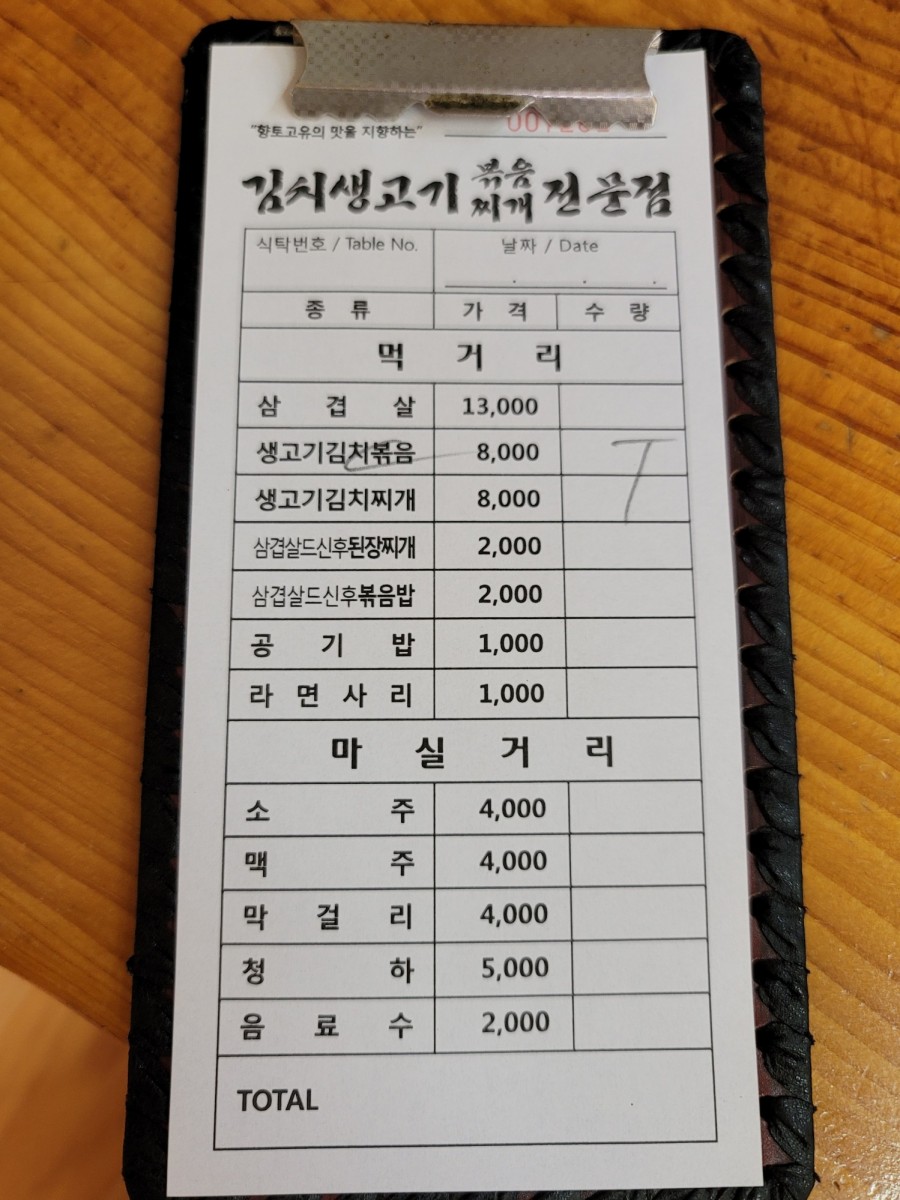 "향토고유의 맛을 지향하는"
김치생고기 볶음 찌개 전문점
식탁번호 / Table No. 날짜 / Date
종 류 가 격 수 량
먹 거 리
삼 겹 살 13,000
생고기김치볶음 8,000
생고기김치찌개 8,000
삼겹살드신후된장찌개 2,000
삼겹살드신후볶음밥 2,000
공 기 밥 1,000
라 면 사 리 1,000
마 실 거 리
소 주 4,000
맥 주 4,000
막 걸 리 4,000
청 하 5,000
음 료 수 2,000
TOTAL